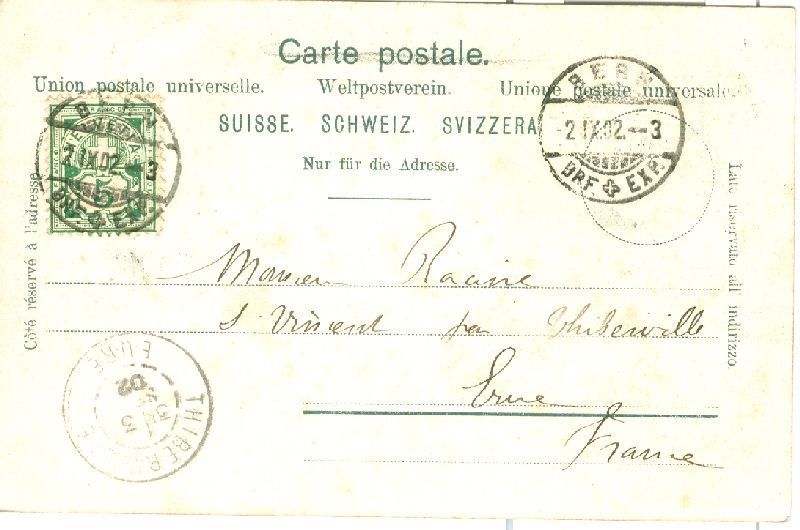 Carte postale.
Union postale universelle. Weltpostverein. Unione postale universale.
SUISSE. SCHWEIZ. SVIZZERA
Nur für die Adresse.
Côté réservé à l'adresse
Lato riservato all indirizzo
BERN
2.IX.02.--3
BRF. EXP.
HELVETIA
5
BERN
-2.IX.02.--3
BRF. EXP.
Monsieur Racine
S. Vincent par Thiberville
Eure
France
THIBERVILLE
EURE
3
02